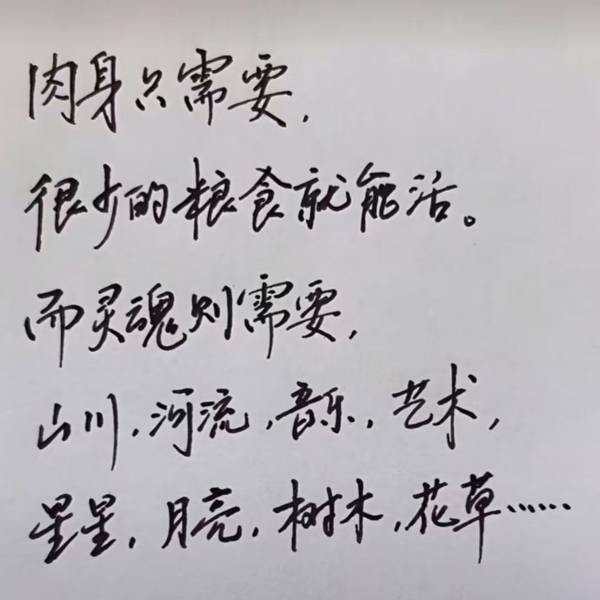 肉身只需要,
很少的粮食就能活。
而灵魂则需要,
山川,河流,音乐,艺术,
星星,月亮,树木,花草……